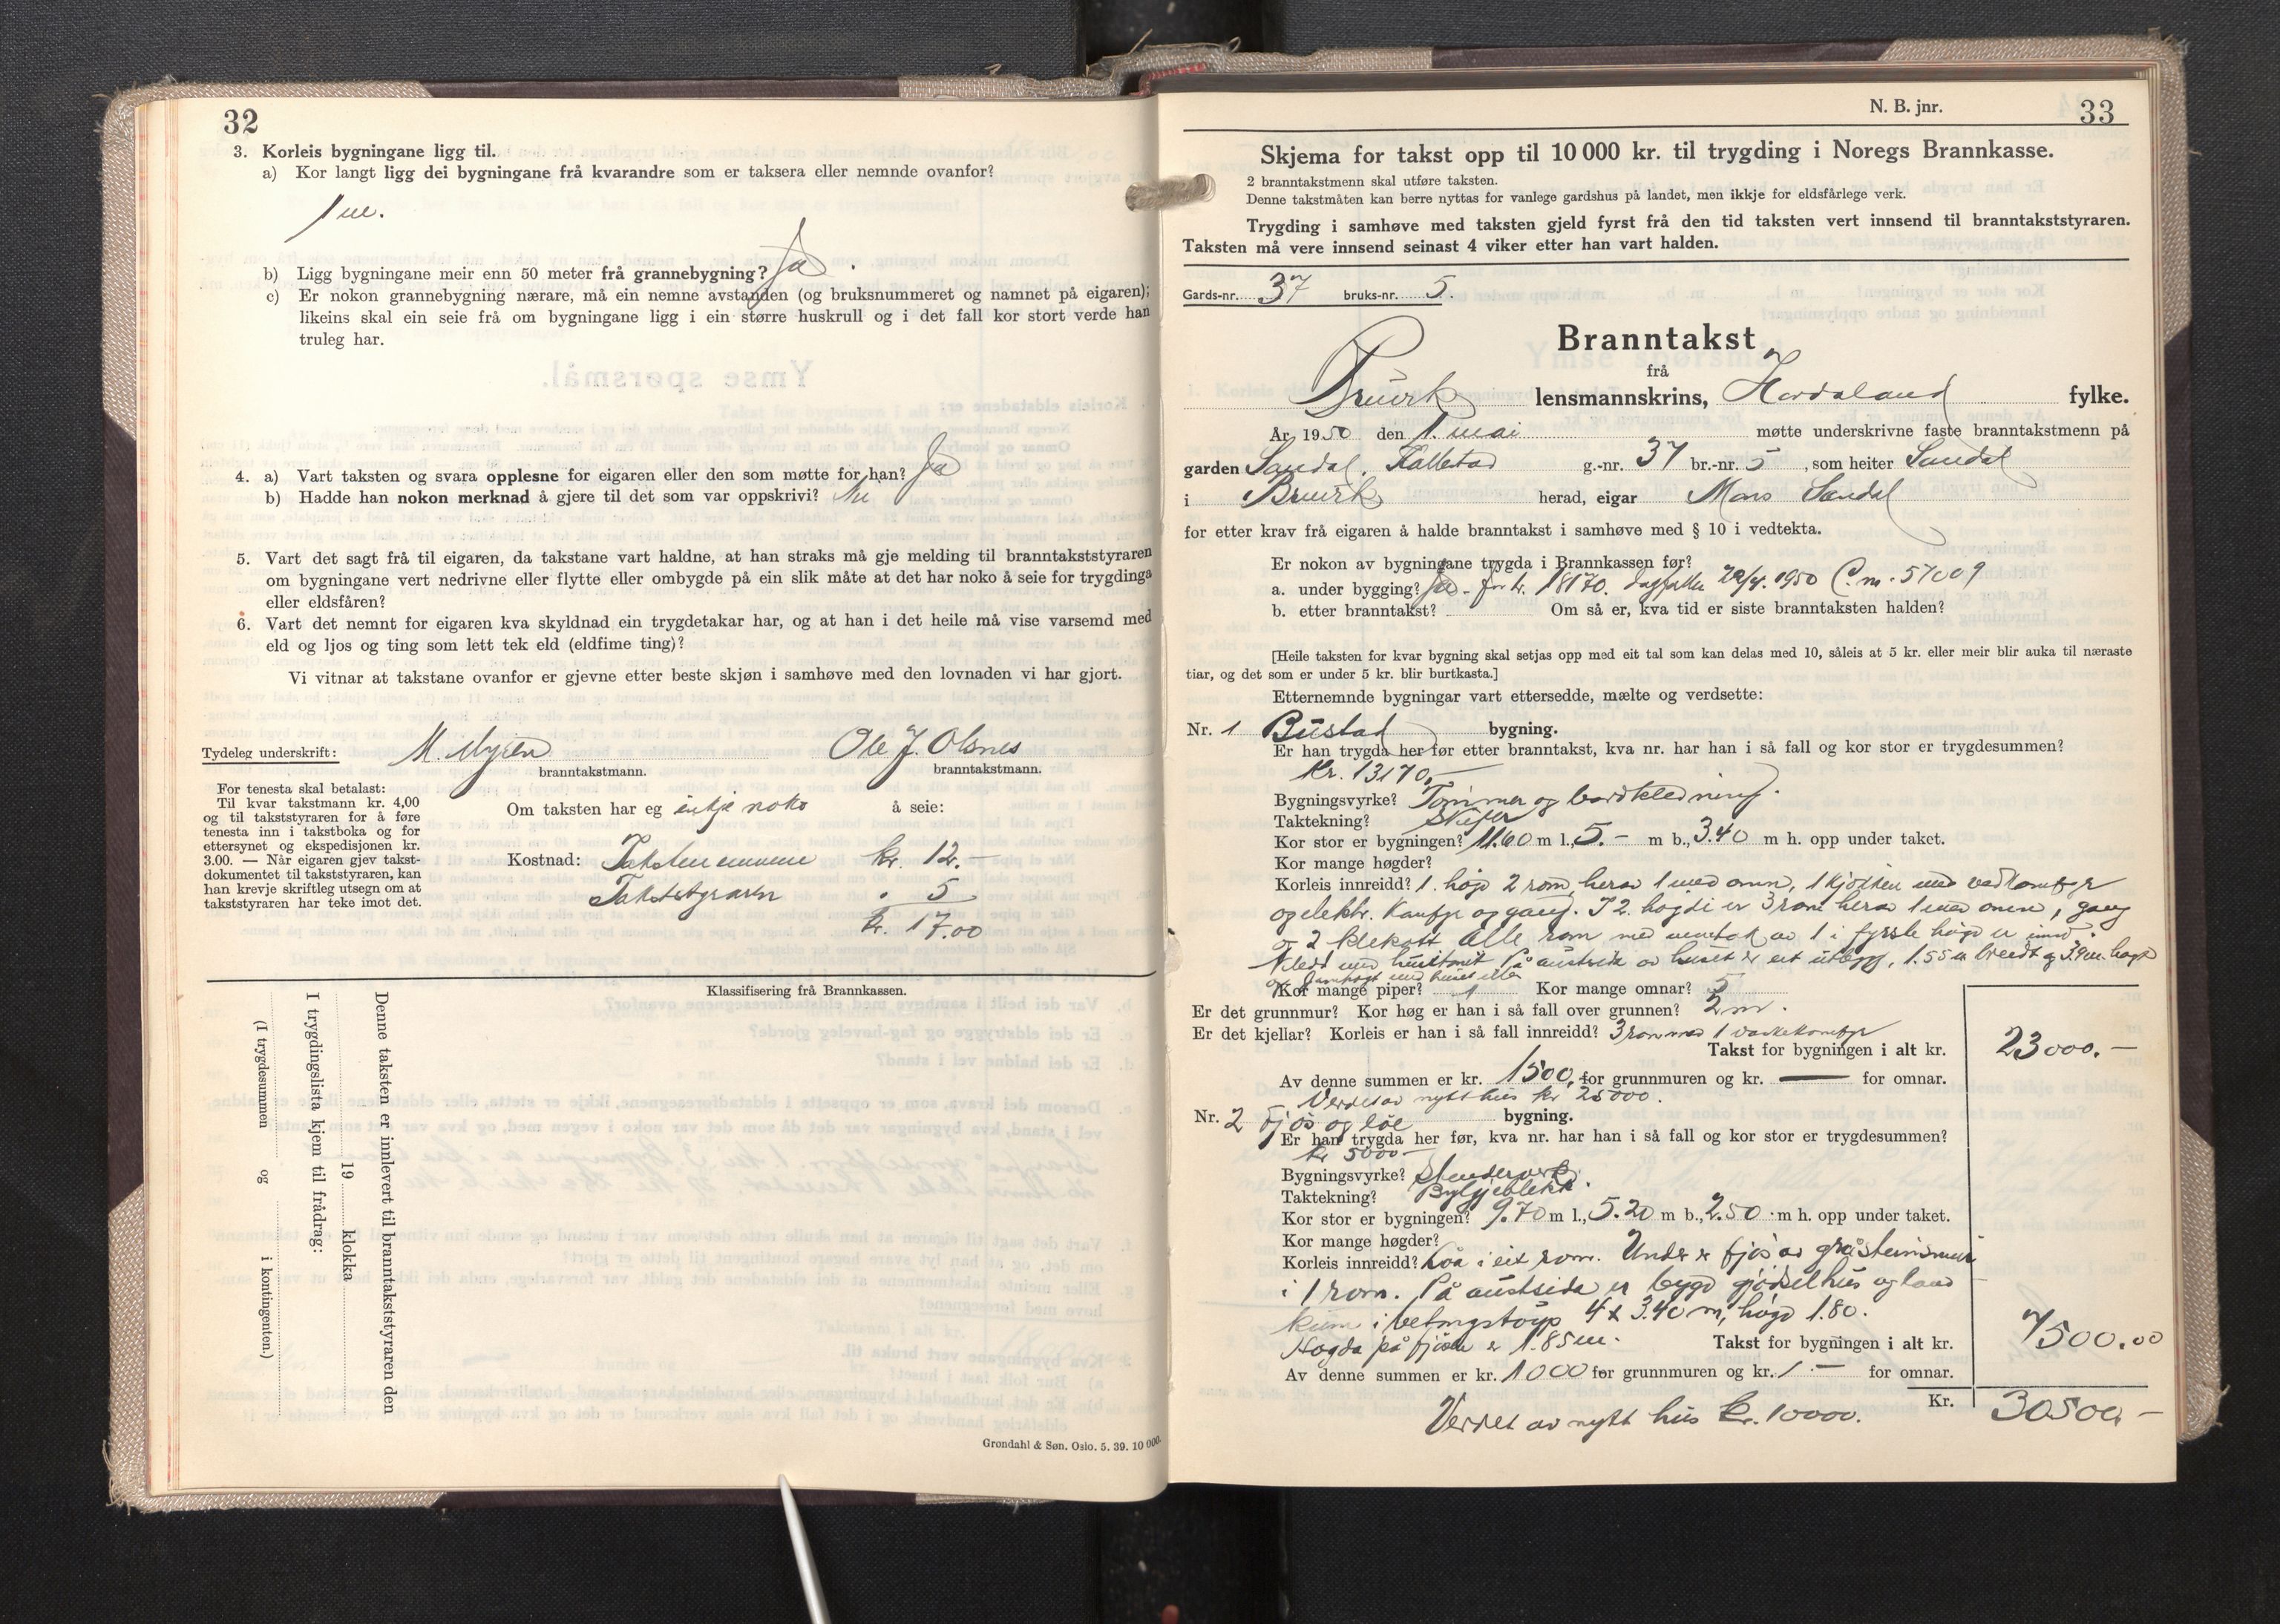 32
3. Korleis bygningane ligg til.
a) Kor langt ligg dei bygningane frå kvarandre som er taksera eller nemnde ovanfor?
1 m.
b) Ligg bygningane meir enn 50 meter frå grannebygning? Ja.
c) Er nokon grannebygning nærare, må ein nemne avstanden (og bruksnummeret og namnet på eigaren);
likeins skal ein seie frå om bygningane ligg i ein større huskrull og i det fall kor stort verde han
truleg har.
4. a) Vart taksten og svara opplesne for eigaren eller den som møtte for han? Ja
b) Hadde han nokon merknad å gjere til det som var oppskrivi? Nei
5. Vart det sagt frå til eigaren, da takstane vart haldne, at han straks må gje melding til branntakststyraren
om bygningane vert nedrivne eller flytte eller ombygde på ein slik måte at det har noko å seie for trygdinga
eller eldsfåren?
6. Vart det nemnt for eigaren kva skyldnad ein trygdetakar har, og at han i det heile må vise varsemd med
eld og ljos og ting som lett tek eld (eldfime ting)?
Vi vitnar at takstane ovanfor er gjevne etter beste skjøn i samhøve med den lovnaden vi har gjort.
Tydeleg underskrift: M. Myren Ole J. Olsnes
branntakstmann. branntakstmann.
For tenesta skal betalast:
Til kvar takstmann kr. 4,00
og til takststyraren for å føre
tenesta inn i takstboka og for
ettersynet og ekspedisjonen kr.
3.00. — Når eigaren gjev takst-
dokumentet til takststyraren, kan
han krevje skriftleg utsegn om at
takststyraren har teke imot det.
Om taksten har eg inkje noko å seie:
Kostnad: Takstmennene kr. 12.—
Takststyraren " 5
kr. 17.00
Klassifisering frå Brannkassen.
Denne taksten er innlevert til branntakststyraren den
19 klokka
I trygdingslista kjem til frådrag:
(I trygdesummen og i kontingenten.)
Grøndahl & Søn. Oslo. 5. 39. 10 000.
N. B. jnr. 33
Skjema for takst opp til 10 000 kr. til trygding i Noregs Brannkasse.
2 branntakstmenn skal utføre taksten.
Denne takstmåten kan berre nyttas for vanlege gardshus på landet, men ikkje for eldsfårlege verk.
Trygding i samhøve med taksten gjeld fyrst frå den tid taksten vert innsend til branntakststyraren.
Taksten må vere innsend seinast 4 viker etter han vart halden.
Gards-nr. 37 bruks-nr. 5.
Branntakst
frå
Bruvik lensmannskrins, Hordaland fylke.
År 1950 den 1. mai møtte underskrivne faste branntakstmenn på
garden Sandal, Kallestad g.-nr. 37 br.-nr. 5, som heiter Sandal
i Bruvik herad, eigar Mons Sandal
for etter krav frå eigaren å halde branntakst i samhøve med § 10 i vedtekta.
Er nokon av bygningane trygda i Brannkassen før?
a. under bygging? Ja - for kr. 18170. 29/4. 1950 57009
b. etter branntakst? Om så er, kva tid er siste branntaksten halden?
[Heile taksten for kvar bygning skal setjas opp med eit tal som kan delas med 10, såleis at 5 kr. eller meir blir auka til næraste
tiar, og det som er under 5 kr. blir burtkasta.]
Etternemnde bygningar vart ettersedde, mælte og verdsette:
Nr. 1 Bustad bygning.
Er han trygda her før etter branntakst, kva nr. har han i så fall og kor stor er trygdesummen?
Kr. 13170.—
Bygningsvyrke? Tømmer og bordkledning.
Taktekning? Skifer
Kor stor er bygningen? 11.60 m l., 5.- m b., 3.40 m h. opp under taket.
Kor mange høgder?
Korleis innreidd? 1. høgd 2 rom, herav 1 med omn, 1 kjøkken med vedkomfyr
og elektr. Komfyr og gang. I 2. høgdi er 3 rom herav 1 med omn, gang
og 2 klekott Alle rom med unntak av 1 i fyrste høgd er innv.
kledd med På austsida av huset er eit utbygg, 1.55 m breidt og 3.90 m. høgt
og med huset elles
Kor mange piper? 1 Kor mange omnar? 5
Er det grunnmur? Kor høg er han i så fall over grunnen? 2 m.
Er det kjellar? Korleis er han i så fall innreidd? 3 rom med 1 vaskekomfyr
Takst for bygningen i alt kr. 23000.—
Av denne summen er kr. 1500, for grunnmuren og kr. — for omnar.
Verdet av nytt hus kr 25000.
Nr. 2 Fjøs og løe bygning.
Er han trygda her før, kva nr. har han i så fall og kor stor er trygdesummen?
kr 5000—
Bygningsvyrke? Stenderverk
Taktekning? Bylgjeblekk.
Kor stor er bygningen? 9.70 m l., 5.20 m b., 2.50 m h. opp under taket.
Kor mange høgder?
Korleis innreidd? Løa i eit rom. Under er fjøs av gråsteinsmur
i 1 rom. På austsida er bygd gjødselhus og land
kum i betongstøyp 4 x 3.40 m, høgd 1.80.
Høgda på fjøsen er 1.85 m. Takst for bygningen i alt kr. 7500.00
Av denne summen er kr. 1000 for grunnmuren og kr. — for omnar.
Kr. 30500,—
Verdet av nytt hus kr. 10000.